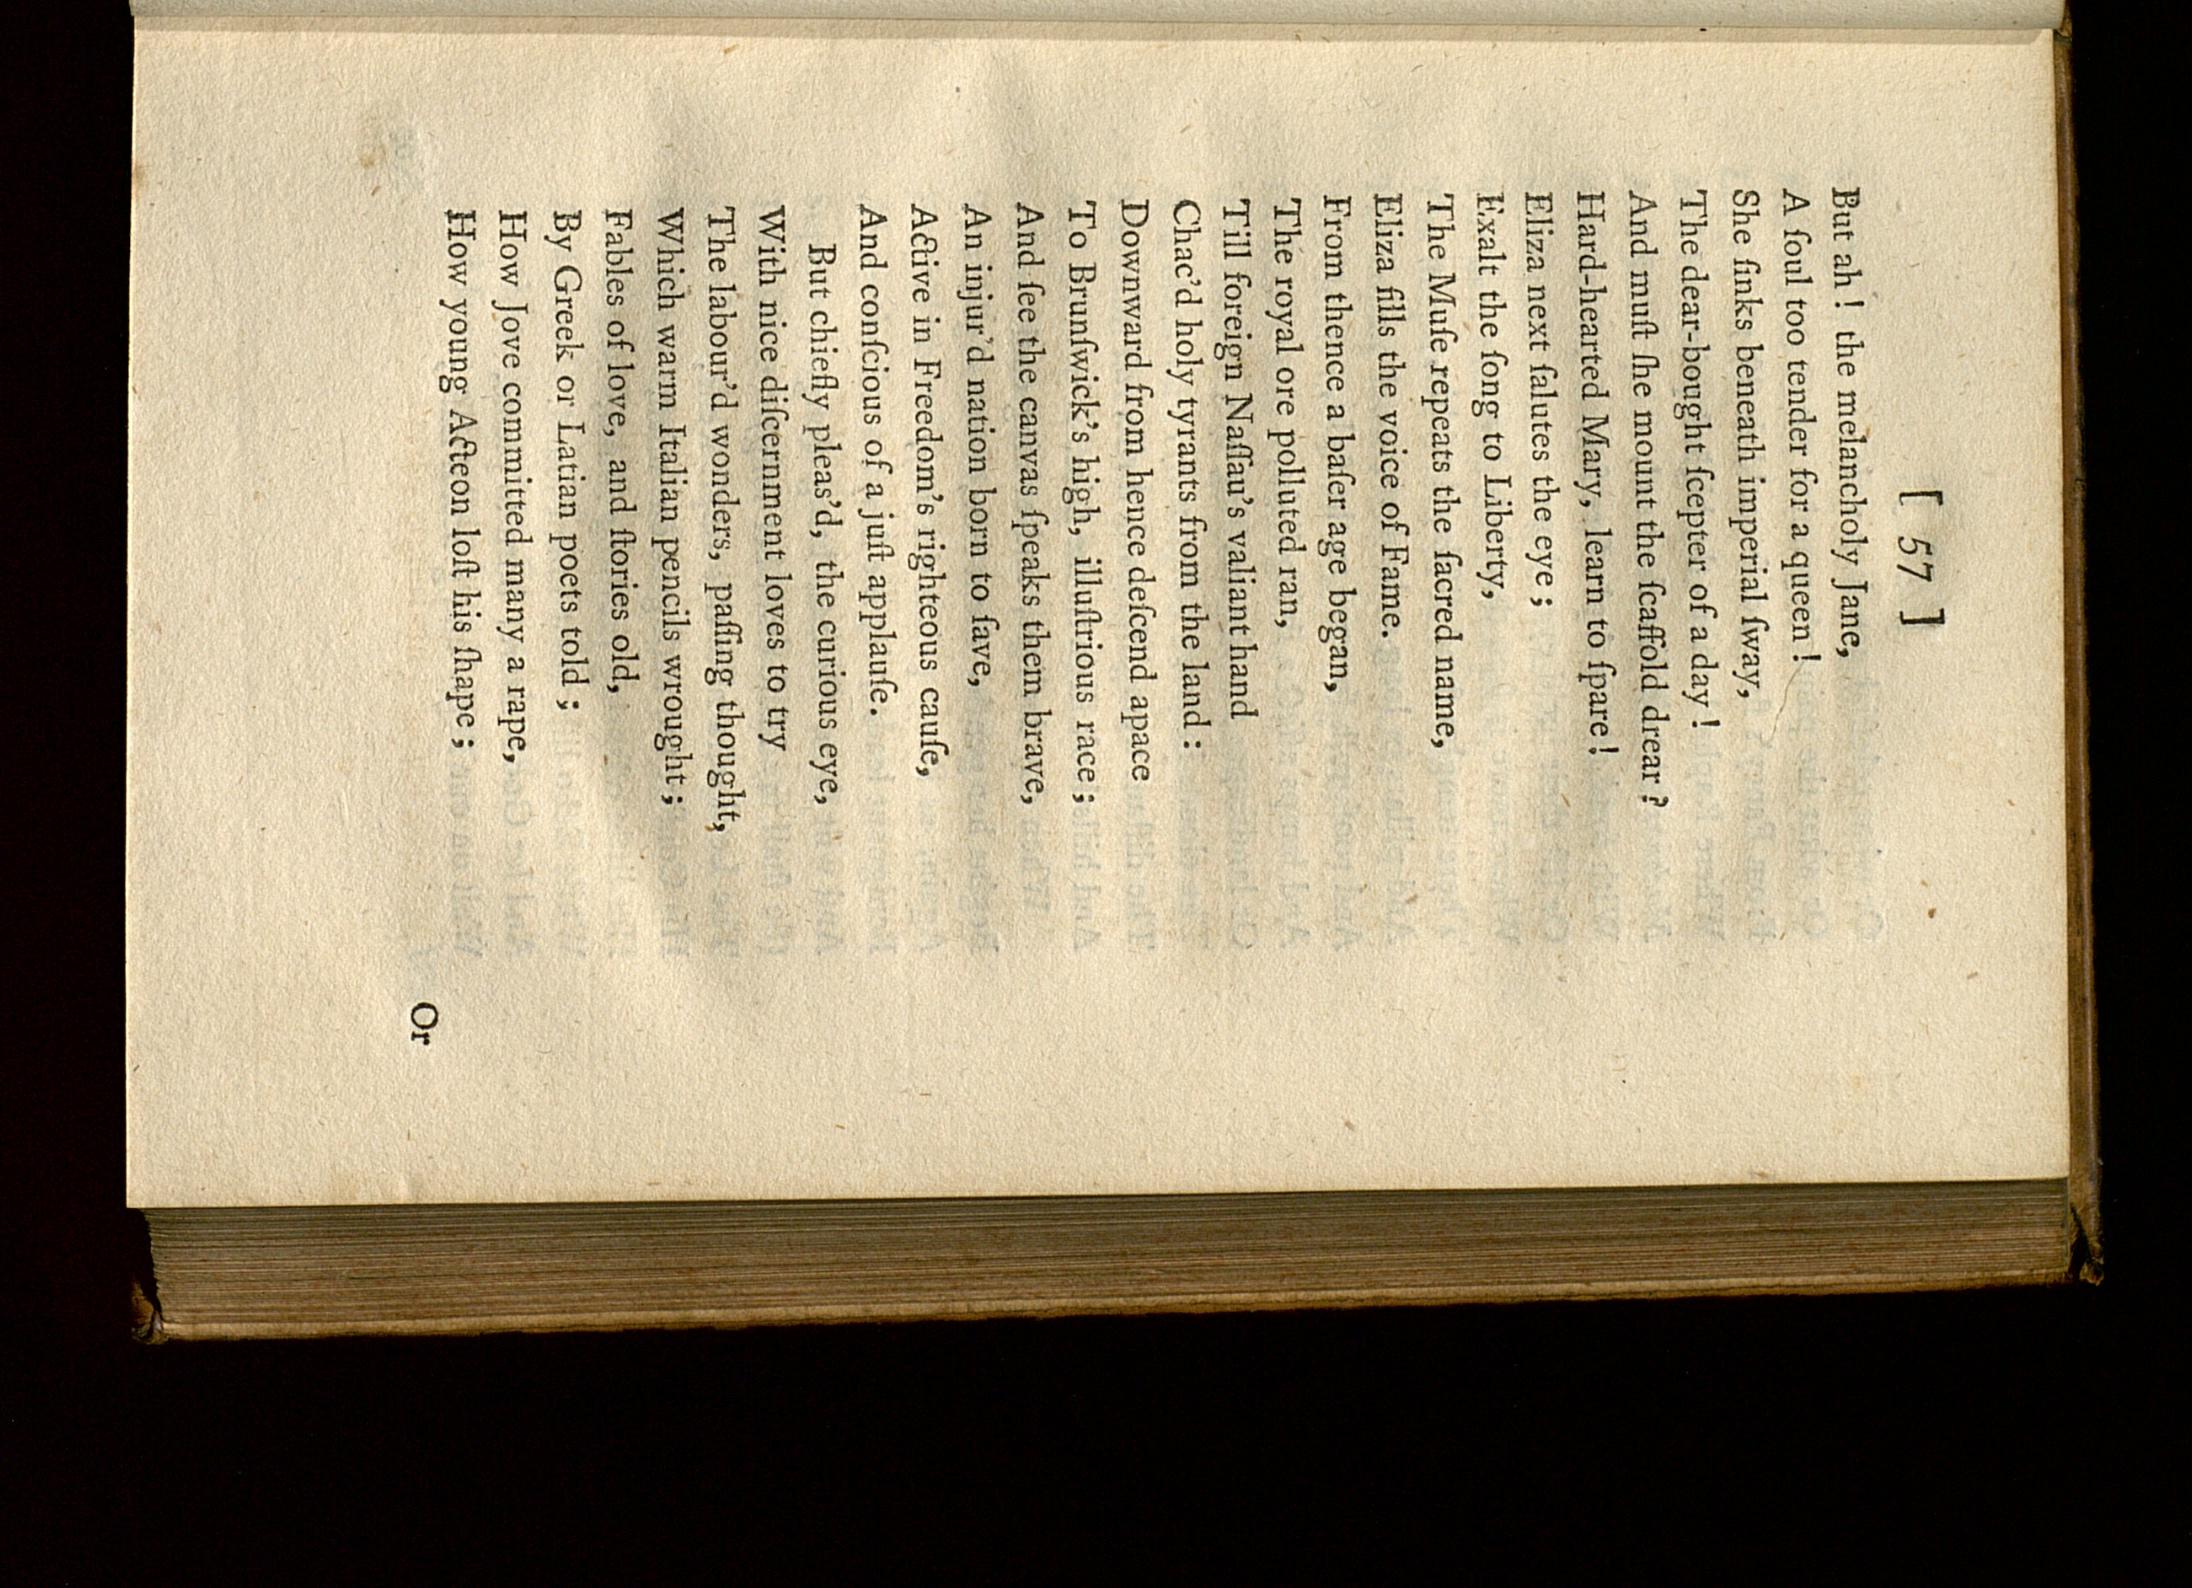 [ 57 ]
But ah! the melancholy Jane,
A ſoul too tender for a queen!
She ſinks beneath imperial ſway,
The dear-bought ſcepter of a day!
And muſt ſhe mount the ſcaffold drear?
Hard-hearted Mary, learn to ſpare!
Eliza next ſalutes the eye;
Exalt the ſong to Liberty,
The Muſe repeats the ſacred name,
Eliza fills the voice of Fame.
From thence a baſer age began,
The royal ore polluted ran,
Till foreign Naſſau's valiant hand
Chac'd holy tyrants from the land:
Downward from hence deſcend apace
To Brunſwick's high, illuſtrious race;
And ſee the canvas ſpeaks them brave,
An injur'd nation born to ſave,
Active in Freedom's righteous cauſe,
And conſcious of a juſt applauſe.
But chiefly pleas'd, the curious eye,
With nice diſcernment loves to try
The labour'd wonders, paſſing thought,
Which warm Italian pencils wrought;
Fables of love, and ſtories old,
By Greek or Latian poets told;
How Jove committed many a rape,
How young Acteon loſt his ſhape;
Or